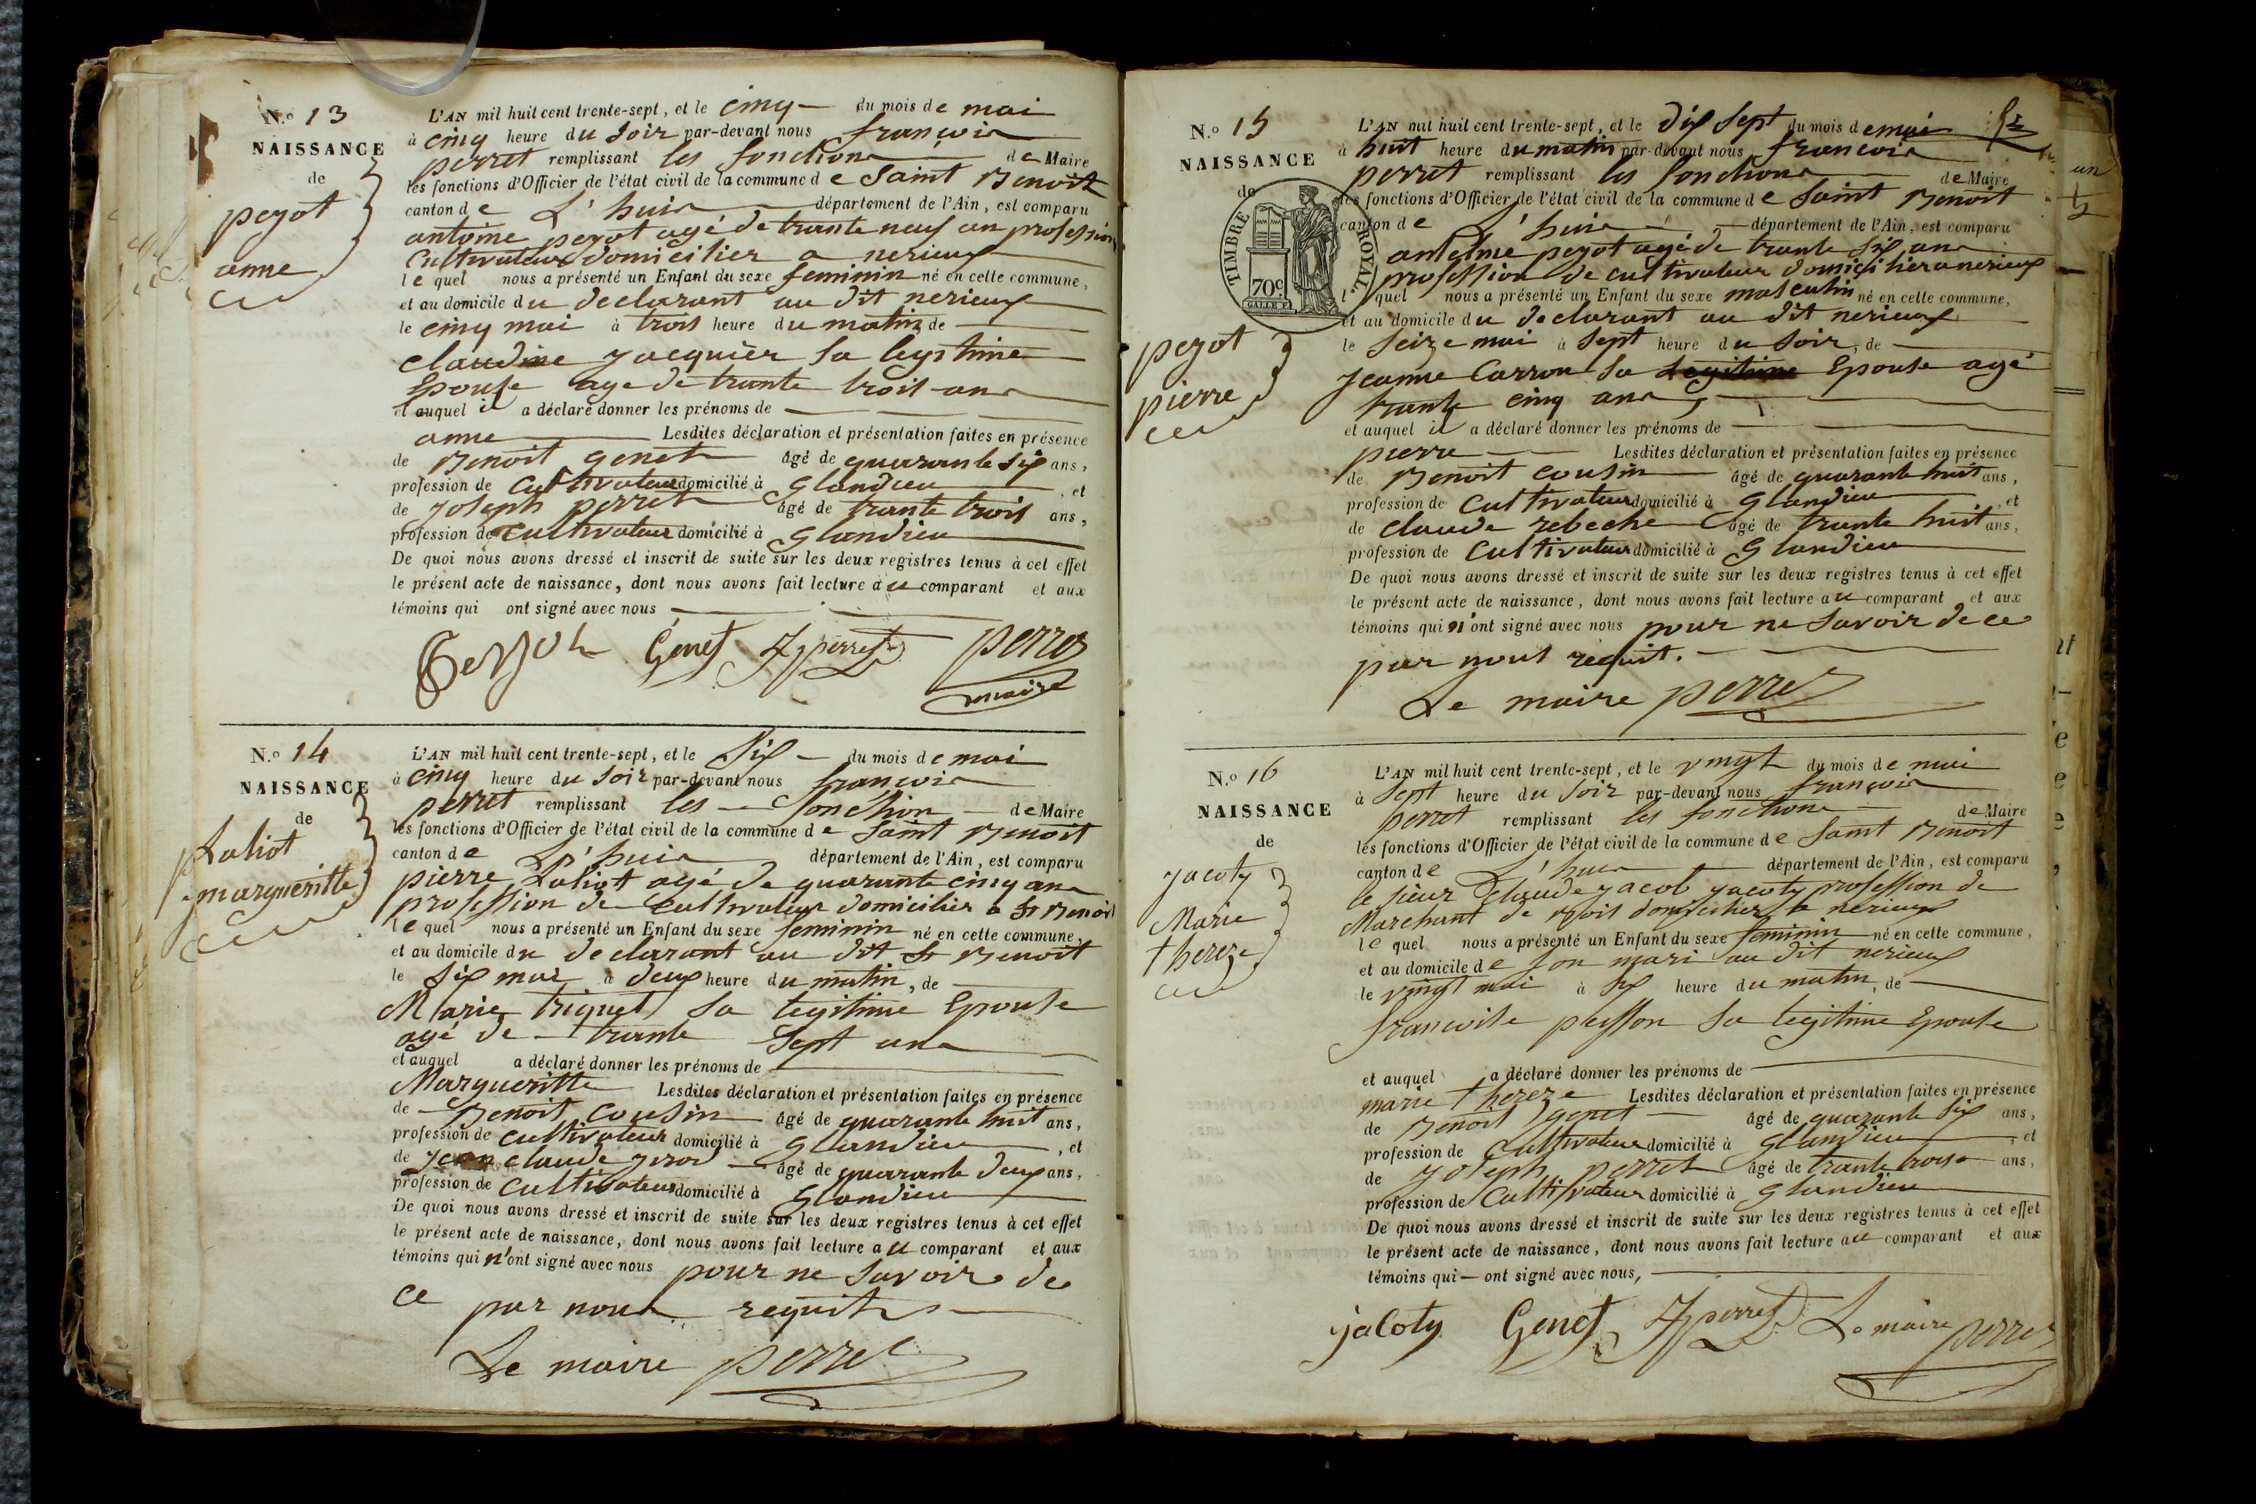 N.o 13
NAISSANCE
de
peyot
anne
L'AN mil huit cent trente-sept, et le cinq du mois de mai
à cinq heure du soir par-devant nous françois
perret remplissant les fonctions de Maire
les fonctions d'Officier de l'état civil de la commune de Saint Benoit
canton de L'huis département de l'Ain, est comparu
antoine peyot agé de trante neuf an profession
cultivateur domicilier a nerieux
le quel nous a présenté un Enfant du sexe feminin né en cette commune,
et au domicile du declarant au dit nerieux
le cinq mai à trois heure du matin de
claudine jacquier sa legitime
Epouse age de trante trois ans
et auquel il a déclaré donner les prénoms de
anne Lesdites déclaration et présentation faites en présence
de Benoit genet âgé de quarante six ans,
profession de cultivateur domicilié à Glandieu, et
de joseph perret âgé de trante trois ans,
profession de cultivateur domicilié à Glandieu
De quoi nous avons dressé et inscrit de suite sur les deux registres tenus à cet effet
le présent acte de naissance, dont nous avons fait lecture au comparant et aux
témoins qui ont signé avec nous
Genet perret perret
maire
N.o 14
NAISSANCE
de
margueritte
L'AN mil huit cent trente-sept, et le six du mois de mai
à cinq heure du soir par-devant nous françois
perret remplissant les fonction de Maire
les fonctions d'Officier de l'état civil de la commune de Saint Benoit
canton de L'huis département de l'Ain, est comparu
pierre agé de quarante cinq ans
profession de cultivateur domicilier a St Benoit
le quel nous a présenté un Enfant du sexe feminin né en cette commune,
et au domicile du declarant au dit St Benoit
le six mai à deux heure du matin, de
Marie triquet sa legitime Epouse
agé de trante Sept ans
et auquel a déclaré donner les prénoms de
Margueritte Lesdites déclaration et présentation faites en présence
de Benoit cousin âgé de quarante huit ans,
profession de cultivateur domicilié à Glandieu, et
de jean claude âgé de quarante deux ans,
profession de cultivateur domicilié à Glandieu
De quoi nous avons dressé et inscrit de suite sur les deux registres tenus à cet effet
le présent acte de naissance, dont nous avons fait lecture au comparant et aux
témoins qui n'ont signé avec nous pour ne savoir de
ce par nous requit
Le maire perret
N.o 15
NAISSANCE
de
TIMBRE ROYAL
70c
peyot
pierre
L'AN mil huit cent trente-sept, et le dix sept du mois de mai
à huit heure du matin par-devant nous francois
perret remplissant les fonctions de Maire
les fonctions d'Officier de l'état civil de la commune de Saint Benoit
canton de L'huis département de l'Ain, est comparu
antelme peyot agé de trante six ans
profession de cultivateur domicilier a nerieux
l quel nous a présenté un Enfant du sexe masculin né en cette commune,
et au domicile du declarant au dit nerieux
le seize mai à sept heure du soir, de
jeanne Carron sa legitime Epouse agé
trante cinq ans
et auquel il a déclaré donner les prénoms de
pierre Lesdites déclaration et présentation faites en présence
de Benoit cousin âgé de quarante huit ans,
profession de cultivateur domicilié à Glandieu, et
de claude rebeche âgé de trante huit ans,
profession de cultivateur domicilié à Glandieu
De quoi nous avons dressé et inscrit de suite sur les deux registres tenus à cet effet
le présent acte de naissance, dont nous avons fait lecture au comparant et aux
témoins qui n'ont signé avec nous pour ne savoir de ce
par nous requit.
Le maire perret
N.o 16
NAISSANCE
de
jacoty
Marie
thereze
L'AN mil huit cent trente-sept, et le vingt du mois de mai
à sept heure du soir par-devant nous françois
perret remplissant les fonctions de Maire
les fonctions d'Officier de l'état civil de la commune de Saint Benoit
canton de L'huis département de l'Ain, est comparu
le sieur claude jacob jacoty profession de
Marchant de Bois domicilier a nerieux
le quel nous a présenté un Enfant du sexe feminin né en cette commune,
et au domicile de son mari au dit nerieux
le vingt mai à six heure du matin, de
francoise sa legitime Epouse
et auquel a déclaré donner les prénoms de
marie thereze Lesdites déclaration et présentation faites en présence
de Benoit genet âgé de quarante six ans,
profession de cultivateur domicilié à Glandieu, et
de joseph perret âgé de trante trois ans,
profession de cultivateur domicilié à Glandieu
De quoi nous avons dressé et inscrit de suite sur les deux registres tenus à cet effet
le présent acte de naissance, dont nous avons fait lecture au comparant et aux
témoins qui ont signé avec nous,
jacoty Genet perret Le maire perret